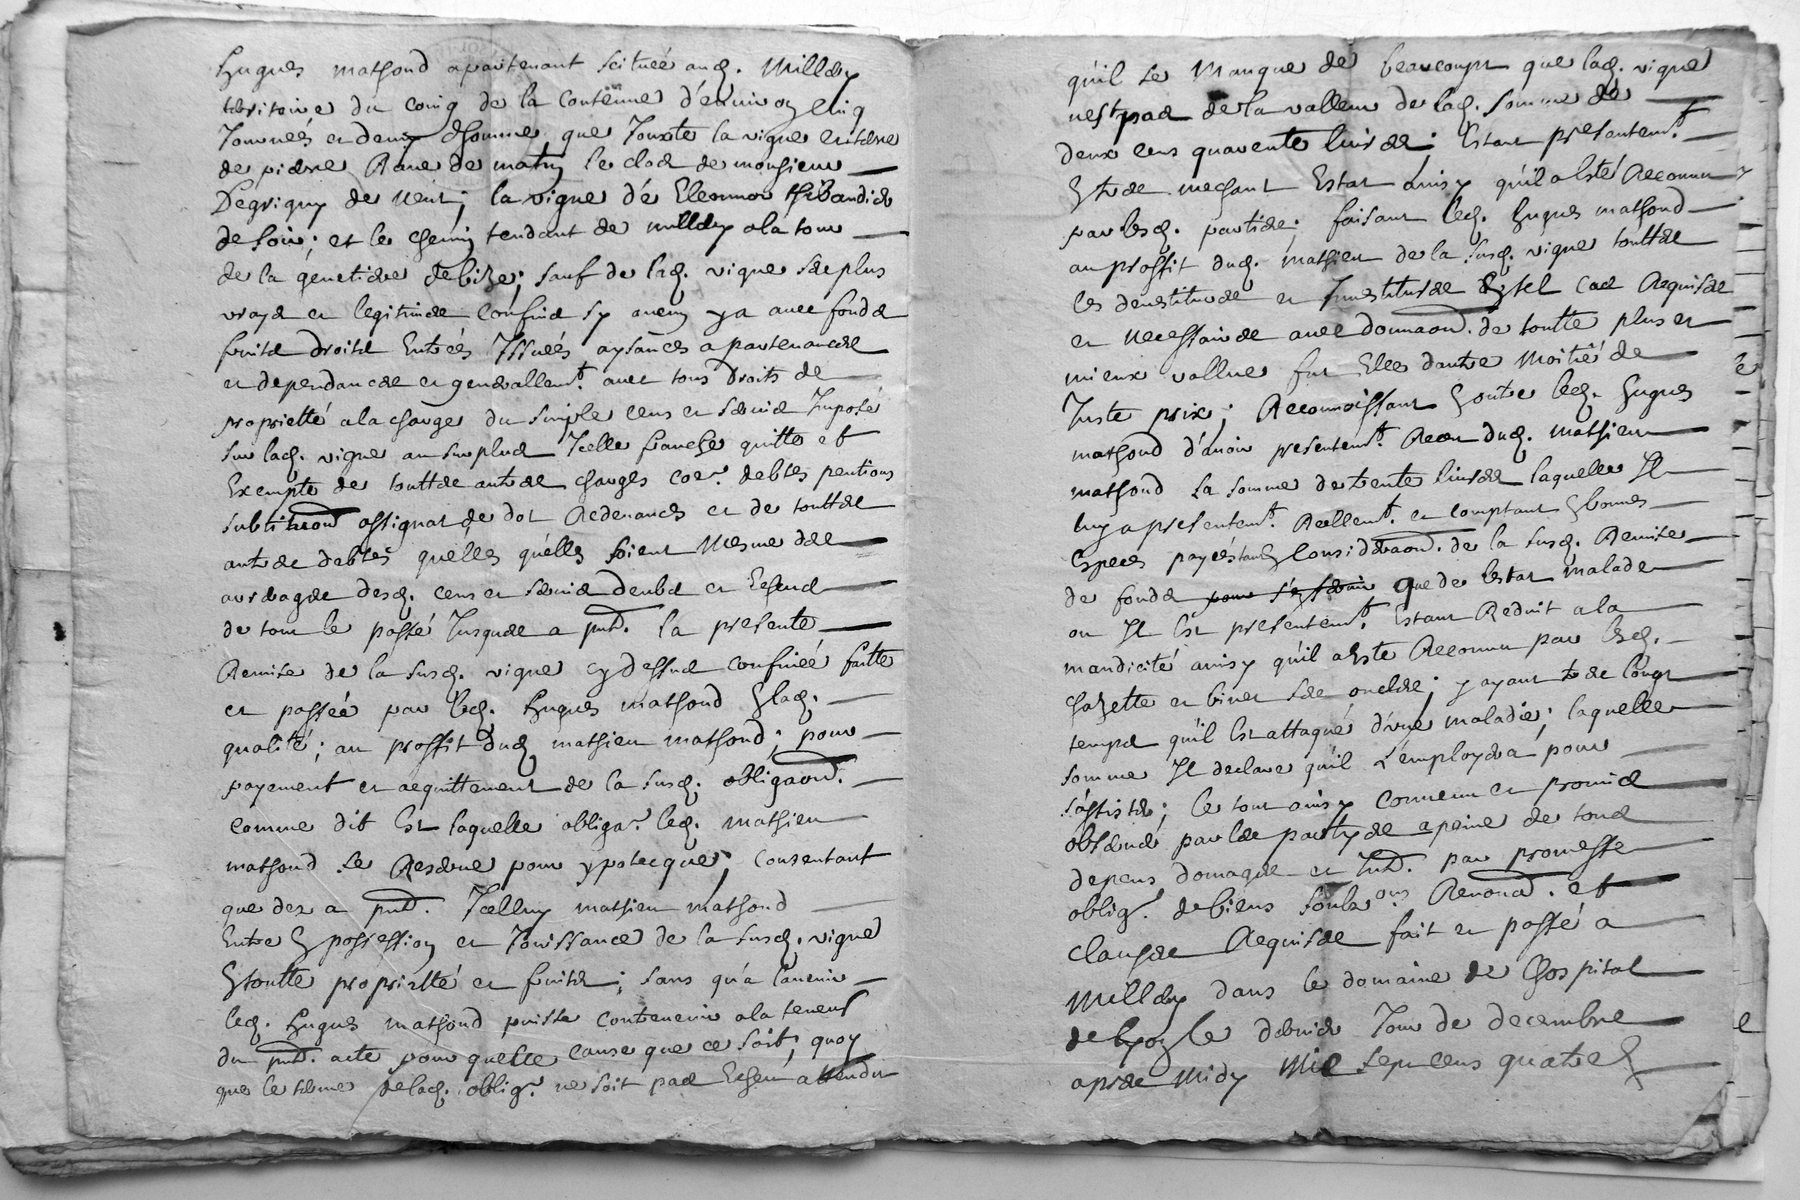 hugues mathoud apartenant scituée aud. Millery
térritoire du coing de la contenue d'enuiron cinq
Journeés et demy d'homme que Jouxte la vigne et terre
de pierre Rane de matin le clos de monsieur
Degrigny de vent; la vigne de Eleonnor thibaudier
de soir; et le chemin tendant de millery a la tour
de la génetiere de bize; sauf de lad. vigne ses plus
vrays et legitimes confins sy aucun y a auec fonds
fruits droits Entreés Issueés aysances apartenances
et dependances et generallemt. auec tous droits de
proprietté a la charge du simple cens et seruis Imposé
sur lad. vigne au surplus Icelle franche quitte et
Exempte de touttes autres charges coe. debtes pentions
subtitüons assignat de dot Redeuances et de touttes
autres debtes quelles quelles soient mesme des
arrerages desd. cens et seruis deubs et Escheus
de tout le passé Jusques a pnt. la presente
Remise de la susd. vigne cy dessus confineé faitte
et passeé par led. hugues mathoud Esd.
qualité; au proffit dud. mathieu mathoud; pour
payement et acquittement de la susd. obligaon.
comme dit Est laquelle obliga. led. mathieu
mathoud se Reserue pour ypotecque; consentant
que dez a pnt. Icelluy mathieu mathoud
Entre En possession et Jouissance de la susd. vigne
En toutte proprietté et fruits; sans qu'a l'auenir
led. hugues mathoud puisse contreuenir a la teneur
du pnt. acte pour quelle cause que ce soit; quoy
que le terme de lad. oblig. ne soit pas Escheu attendu
qu'il se manque de beaucoupt que lad. vigne
nest pas de la valleur de lad. somme de
deux cens quarente liures; Estant presentemt.
En tres mechant Estat ainsy qu'il a Esté Reconnu
par lesd. parties; faisant led. hugues mathoud
au proffit dud. mathieu de la susd. vigne touttes
les deuestitures et Inuestitures En tel cas Requises
et necessaires auec donnaon. de toutte plus et
mieux vallue fut Elle d'autre moitié de
Juste prix; Reconnoissant En outre led. hugues
mathoud d'auoir presentemt. Receu dud. mathieu
mathoud la somme de trente liures laquelle Il
luy a presentemt. Reellemt. et comptant En bonnes
Especes payeés tant En consideraon. de la susd. Remise
de fonds pour s'en seruir que de l'estat malade
ou Il Est presentemt. Estant Reduit a la
mandicité ainsy qu'il a Esté Reconnu par lesd.
chazette et biuet ses oncles; y ayant tres longt
temps qu'il Est attaqué d'vne maladie; laquelle
somme Il declare qu'il L'employera pour
s'assister; le tout ainsy conuenu et promis
obseruer par les partyes a peine de tous
depens domages et Int. par promesse
oblig. de biens soubz.ons Renonct. et
clauses Requises fait et passé a
Millery dans le domaine de l'hospital
de lyon le dernier Jour de decembre
apres midy mil sept cens quatre E